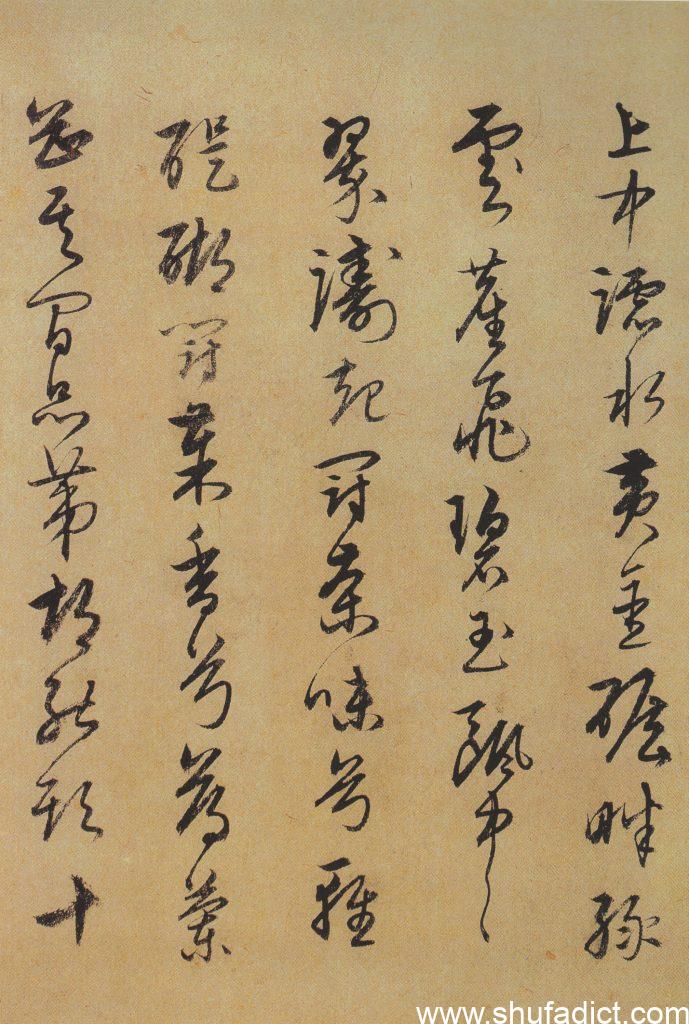 上中澪水黃金碾畔綠
雲塵飛碧玉甌中
翠濤起鬪茶味兮輕
醍醐鬪茶香兮薄蘭
芷其間品第胡能欺十
www.shufadict.com